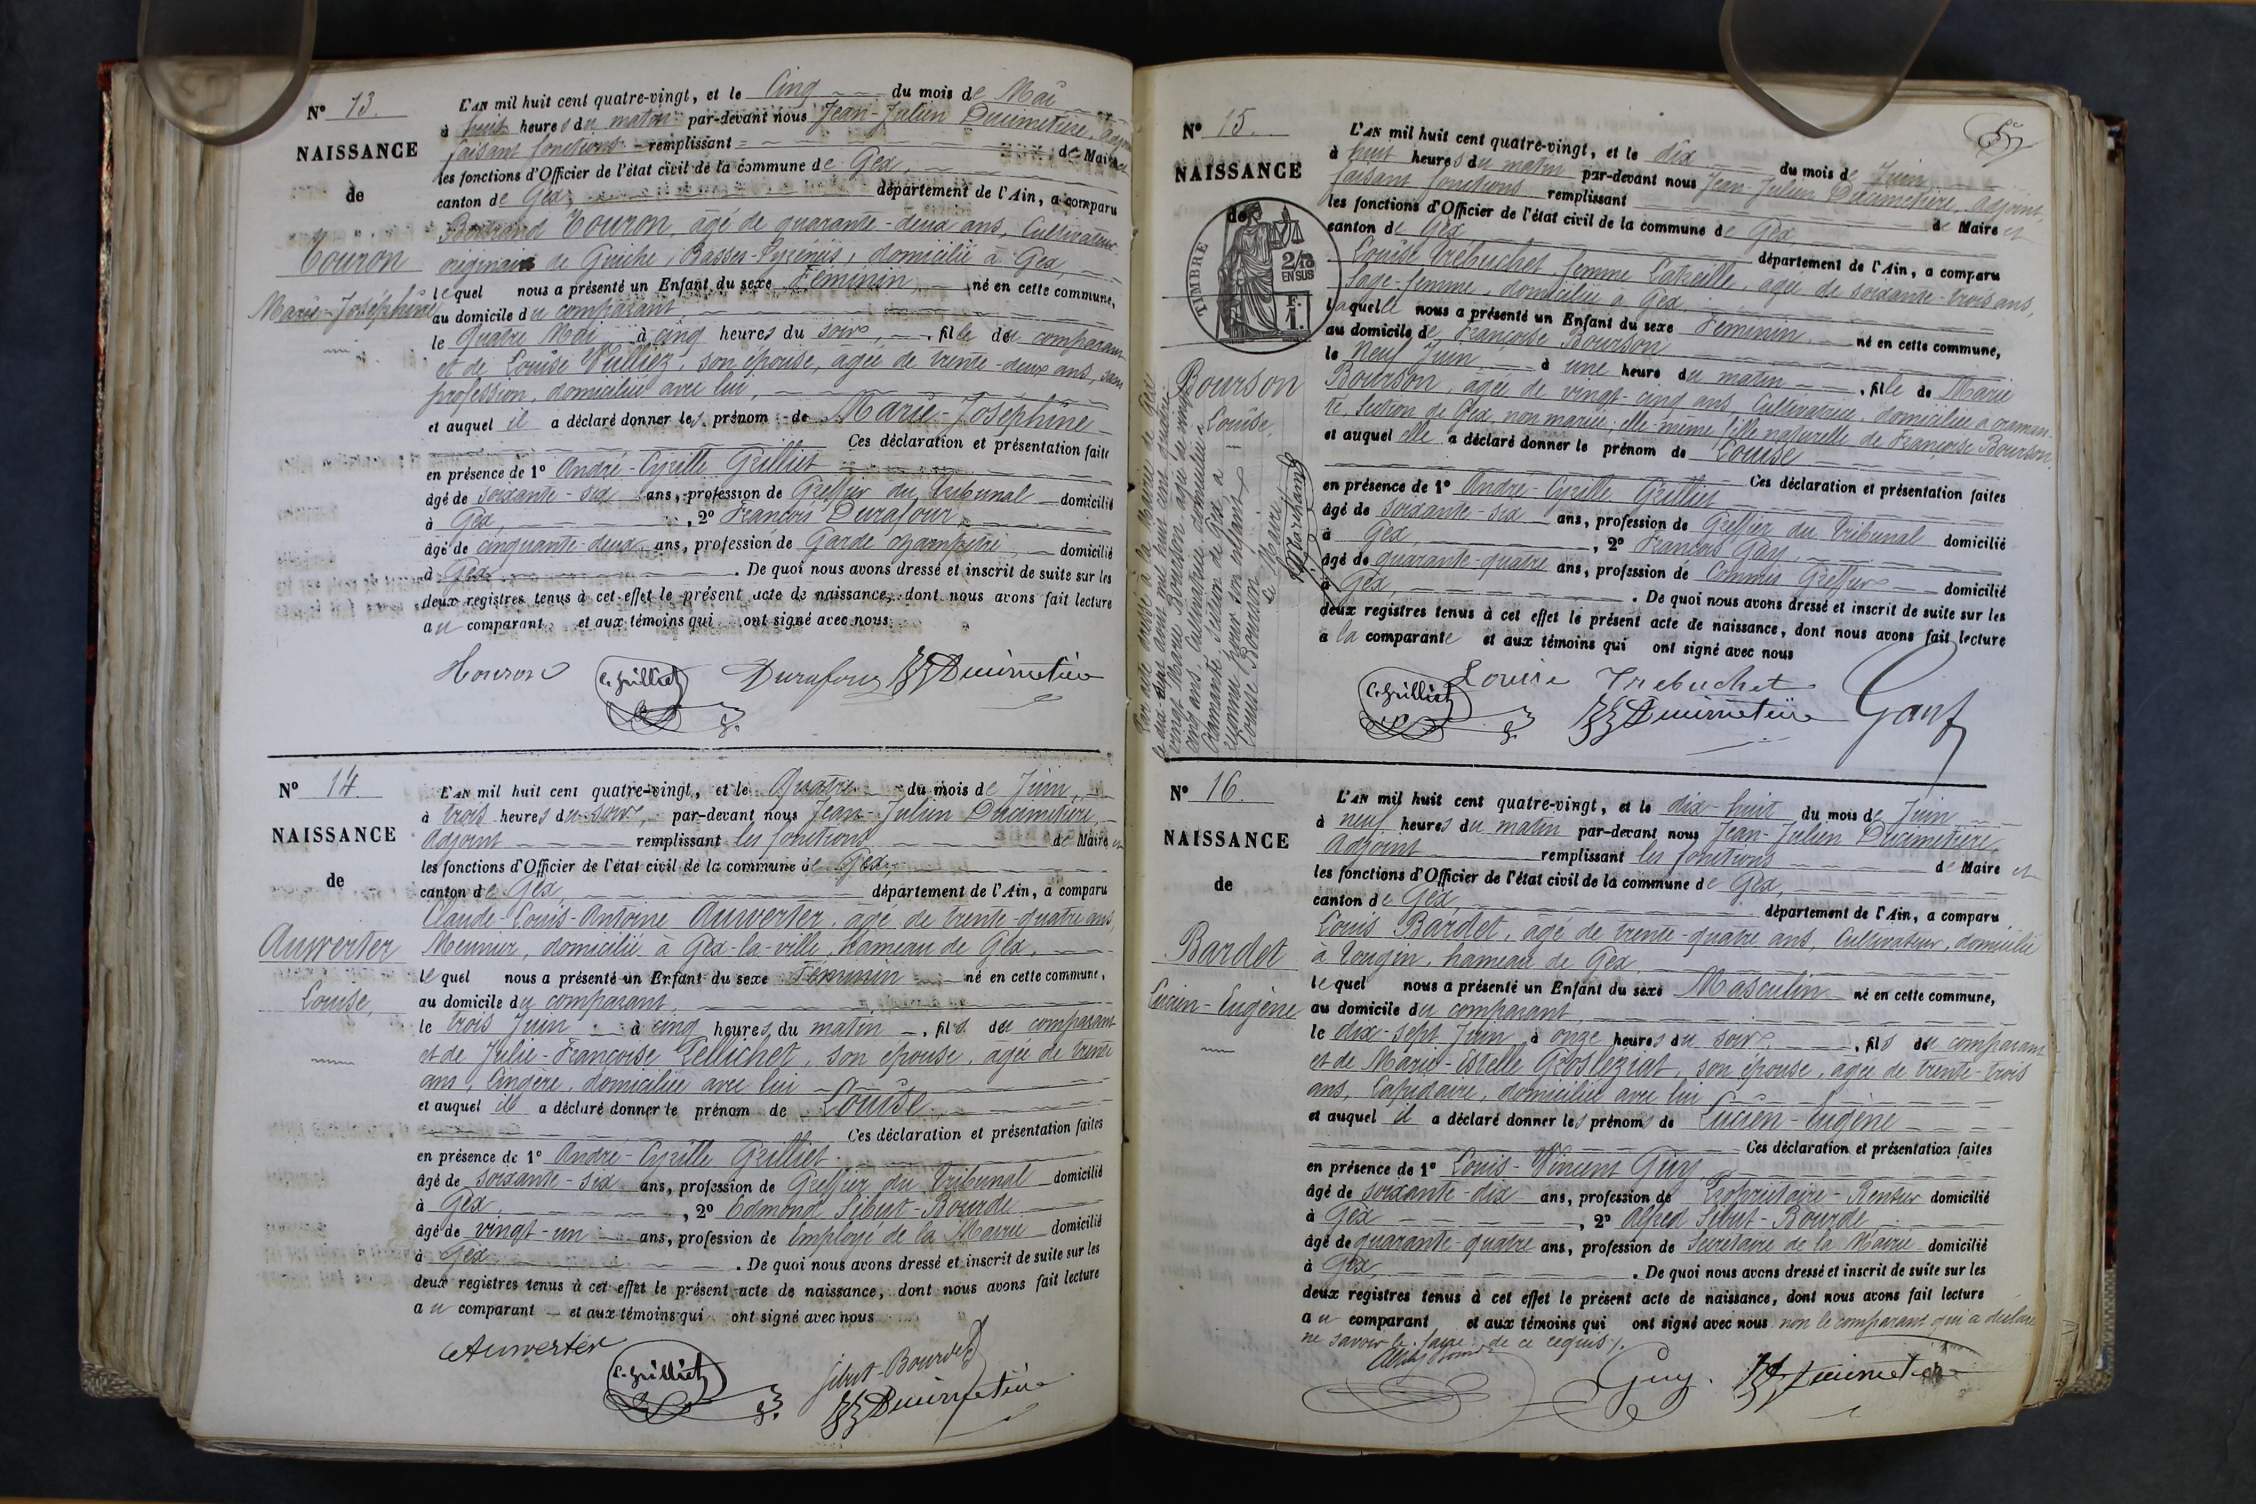 N° 13.
NAISSANCE
de
Touron
Marie-Joséphine
L'AN mil huit cent quatre-vingt, et le Cinq du mois de Mai
à huit heures du matin par-devant nous Jean-Julien Ducimetière, adjoint
faisant fonctions remplissant de Maire et
les fonctions d'Officier de l'état civil de la commune de Gex,
canton de Gex, département de l'Ain, a comparu
Bertrand Touron, âgé de quarante-deux ans, Cultivateur
originaire de Guiche, Basses-Pyrénées, domicilié à Gex,
lequel nous a présenté un Enfant du sexe Féminin, né en cette commune,
au domicile du comparant,
le Quatre Mai à cinq heures du soir, fille du comparant
et de Louise Vulliez, son épouse, âgée de trente-deux ans, sans
profession, domiciliée avec lui,
et auquel il a déclaré donner les prénom de Marie-Joséphine
Ces déclaration et présentation faite
en présence de 1° André-Cyrille Grilliet
âgé de soixante-six ans, profession de Greffier du Tribunal domicilié
à Gex, , 2° François Durafour,
âgé de cinquante-deux ans, profession de Garde champêtre, domicilié
à Gex . De quoi nous avons dressé et inscrit de suite sur les
deux registres tenus à cet effet le présent acte de naissance, dont nous avons fait lecture
au comparant et aux témoins qui ont signé avec nous.
Touron C. Grilliet Durafour JJ Ducimetière
N° 14.
NAISSANCE
de
Auwerter
Louise,
L'AN mil huit cent quatre-vingt, et le Quatre du mois de Juin,
à trois heures du soir, par-devant nous Jean-Julien Ducimetière,
Adjoint remplissant les fonctions de Maire et
les fonctions d'Officier de l'état civil de la commune de Gex,
canton de Gex, département de l'Ain, a comparu
Claude-Louis-Antoine Auwerter, âgé de trente-quatre ans,
Meunier, domicilié à Gex-la-ville, hameau de Gex,
lequel nous a présenté un Enfant du sexe Féminin né en cette commune,
au domicile du comparant,
le trois Juin à cinq heures du matin , fils du comparant
et de Julie-Françoise Pellichet, son épouse, âgée de trente
ans, Lingère, domiciliée avec lui
et auquel il a déclaré donner le prénom de Louise,
Ces déclaration et présentation faites
en présence de 1° André-Cyrille Grilliet
âgé de soixante-six ans, profession de Greffier du Tribunal domicilié
à Gex, , 2° Edmond Sibut-Bourde
âgé de vingt-un ans, profession de Employé de la Mairie domicilié
à Gex . De quoi nous avons dressé et inscrit de suite sur les
deux registres tenus à cet effet le présent acte de naissance, dont nous avons fait lecture
au comparant et aux témoins qui ont signé avec nous
Auwerter C. Grilliet Sibut-Bourde JJ Ducimetière
5
N° 15.
NAISSANCE
de
TIMBRE
2/10 EN SUS
F. 1.
Bourson
Louise,
Par acte dressé à la Mairie de Gex
le dix Juin mil huit cent quatre-
vingt Marie Bourson âgée de vingt-
cinq ans, Cultivatrice, domiciliée à
Cramante Section de Gex, a
reconnu pour son enfant
Louise Bourson
Le Maire
L'AN mil huit cent quatre-vingt, et le dix du mois de Juin,
à huit heures du matin par-devant nous Jean-Julien Ducimetière, adjoint
faisant fonctions remplissant de Maire et
les fonctions d'Officier de l'état civil de la commune de Gex
canton de Gex département de l'Ain, a comparu
Louise Trébuchet, femme Latreille, âgée de soixante-trois ans,
Sage-femme, domiciliée à Gex,
laquelle nous a présenté un Enfant du sexe Féminin, né en cette commune,
au domicile de Françoise Bourson
le Neuf Juin à une heure du matin , fille de Marie
Bourson, âgée de vingt-cinq ans, Cultivatrice, domiciliée à Craman-
te, Section de Gex, non mariée, elle-même fille naturelle de Françoise Bourson,
et auquel elle a déclaré donner le prénom de Louise
Ces déclaration et présentation faites
en présence de 1° André-Cyrille Grilliet
âgé de soixante-six ans, profession de Greffier du Tribunal domicilié
à Gex, , 2° François Gay,
âgé de quarante-quatre ans, profession de Commis Greffier domicilié
à Gex, . De quoi nous avons dressé et inscrit de suite sur les
deux registres tenus à cet effet le présent acte de naissance, dont nous avons fait lecture
à la comparante et aux témoins qui ont signé avec nous
C. Grilliet Louise Trebuchet JJ Ducimetière Gay
N° 16.
NAISSANCE
de
Bardet
Lucien-Eugène
L'AN mil huit cent quatre-vingt, et le dix-huit du mois de Juin
à neuf heures du matin par-devant nous Jean-Julien Ducimetière,
Adjoint remplissant les fonctions de Maire et
les fonctions d'Officier de l'état civil de la commune de Gex,
canton de Gex, département de l'Ain, a comparu
Louis Bardet, âgé de trente-quatre ans, Cultivateur, domicilié
à Tougin, hameau de Gex,
lequel nous a présenté un Enfant du sexe Masculin né en cette commune,
au domicile du comparant,
le dix-sept Juin à onze heures du soir , fils du comparant
et de Marie-Estelle Grosleziat, son épouse, âgée de trente-trois
ans, Lapidaire, domiciliée avec lui
et auquel il a déclaré donner les prénoms de Lucien-Eugène
Ces déclaration et présentation faites
en présence de 1° Louis-Vincent Guy,
âgé de soixante-dix ans, profession de Propriétaire-Rentier domicilié
à Gex , 2° Alfred Sibut-Bourde,
âgé de quarante-quatre ans, profession de Secrétaire de la Mairie domicilié
à Gex, . De quoi nous avons dressé et inscrit de suite sur les
deux registres tenus à cet effet le présent acte de naissance, dont nous avons fait lecture
au comparant et aux témoins qui ont signé avec nous non le comparant qui a déclaré
ne savoir le faire de ce requis.
Guy. JJ Ducimetière